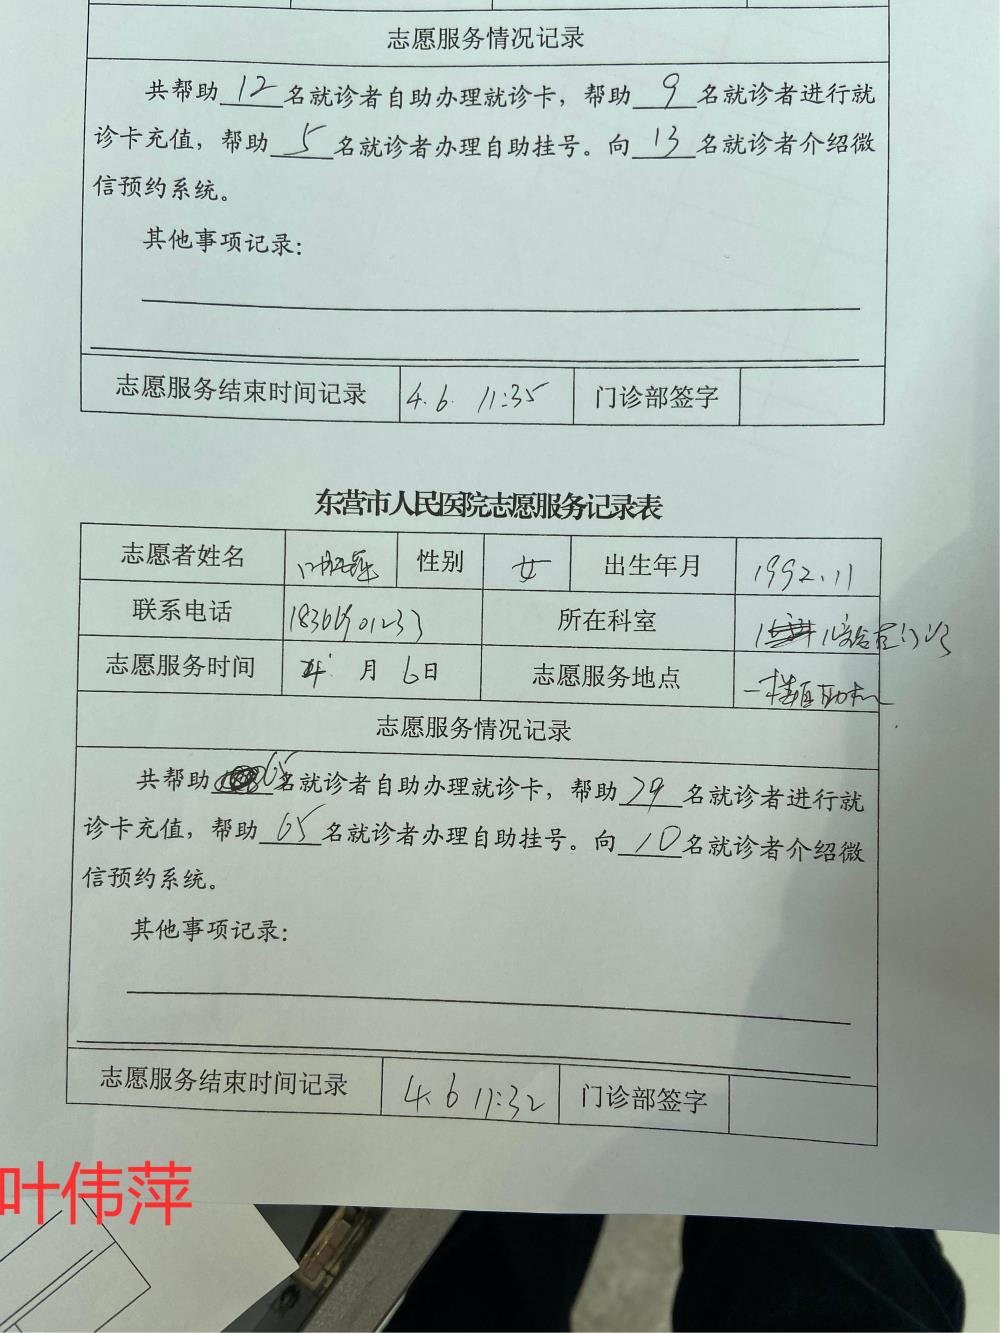 志愿服务情况记录
共帮助12名就诊者自助办理就诊卡，帮助9名就诊者进行就
诊卡充值，帮助5名就诊者办理自助挂号。向13名就诊者介绍微
信预约系统。
其他事项记录:
志愿服务结束时间记录 4.6 11:35 门诊部签字
东营市人民医院志愿服务记录表
志愿者姓名 性别 女 出生年月 1992.11
联系电话 所在科室
志愿服务时间 4月6日 志愿服务地点 一楼自助机
志愿服务情况记录
共帮助65名就诊者自助办理就诊卡，帮助29名就诊者进行就
诊卡充值，帮助65名就诊者办理自助挂号。向10名就诊者介绍微
信预约系统。
其他事项记录:
志愿服务结束时间记录 4.6 11:32 门诊部签字
叶伟萍